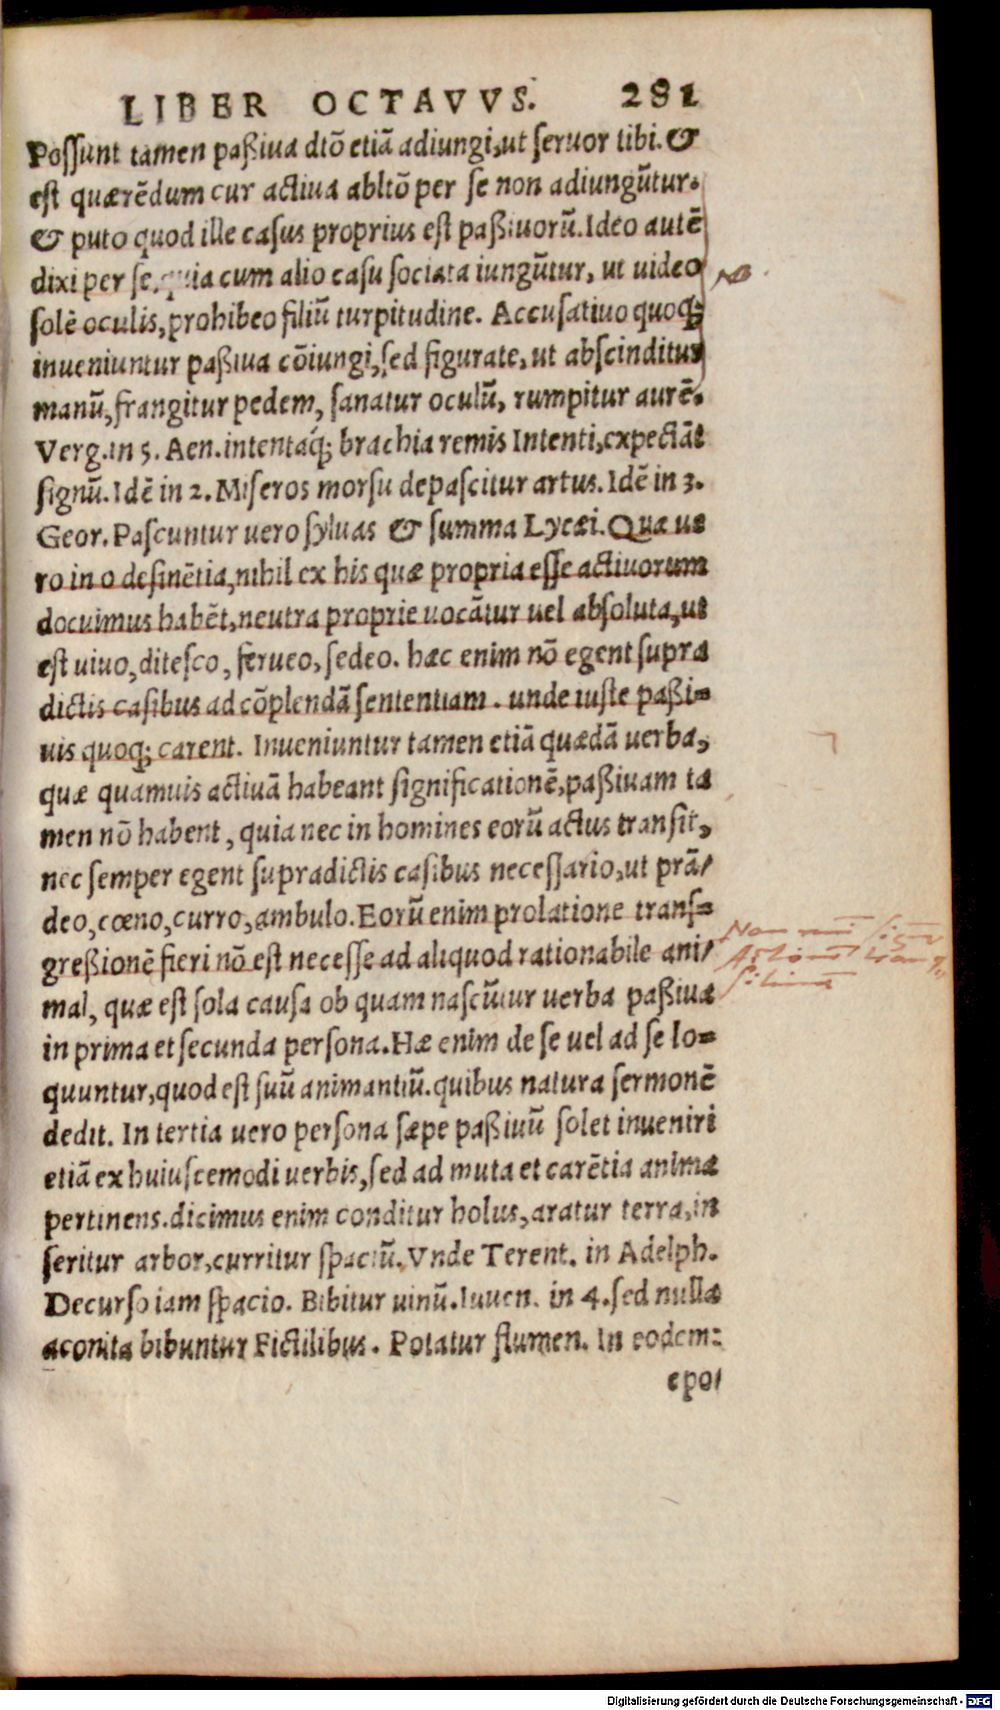 LIBER OCTAVVS. 281
Possunt tamen paßiua dtō etiā adiungi, ut seruor tibi. &
est quærēdum cur actiua abltō per se non adiungūtur.
& puto quod ille casus proprius est paßiuorū. Ideo autē
dixi per se, quia cum alio casu sociata iungūtur, ut uideo
solē oculis, prohibeo filiū turpitudine. Accusatiuo quoq;
inueniuntur paßiua cōiungi, sed figurate, ut abscinditur
manū, frangitur pedem, sanatur oculū, rumpitur aurē.
Verg. in 5. Aen. intentaq́; brachia remis Intenti, expectāt
signū. Idē in 2. Miseros morsu depascitur artus. Idē in 3.
Geor. Pascuntur uero syluas & summa Lycæi. Quæ ue
ro in o desinētia, nihil ex his quæ propria esse actiuorum
docuimus habēt, neutra proprie uocātur uel absoluta, ut
est uiuo, ditesco, ferueo, sedeo. hæc enim nō egent supra
dictis casibus ad cōplendā sententiam. unde iuste paßi=
uis quoq; carent. Inueniuntur tamen etiā quædā uerba,
quæ quamuis actiuā habeant significationē, paßiuam ta
men nō habent, quia nec in homines eorū actus transit,
nec semper egent supradictis casibus necessario, ut prā/
deo, cœno, curro, ambulo. Eorū enim prolatione trans=
greßionē fieri nō est necesse ad aliquod rationabile ani/
mal, quæ est sola causa ob quam nascūtur uerba paßiua
in prima et secunda persona. Hæ enim de se uel ad se lo=
quuntur, quod est suū animantiū. quibus natura sermonē
dedit. In tertia uero persona sæpe paßiuū solet inueniri
etiā ex huiuscemodi uerbis, sed ad muta et carētia anima
pertinens. dicimus enim conditur holus, aratur terra, in
seritur arbor, curritur spaciū. Vnde Terent. in Adelph.
Decurso iam spacio. Bibitur uinū. Iuuen. in 4. sed nulla
aconita bibuntur Fictilibus. Potatur flumen. In eodem:
epo/
Non
Digitalisierung gefördert durch die Deutsche Forschungsgemeinschaft - DFG